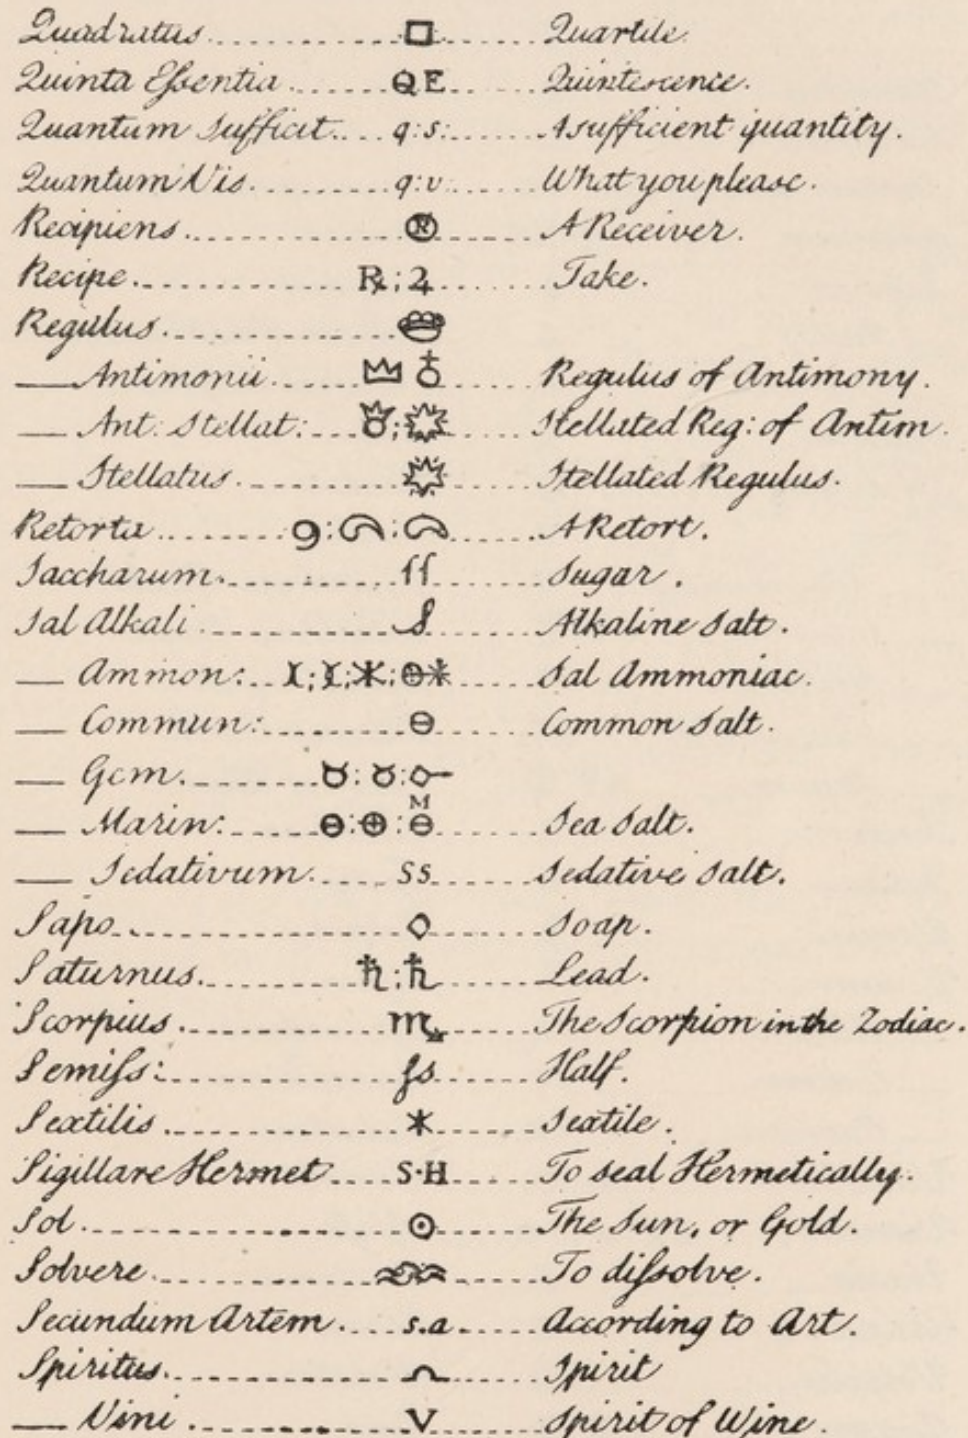 Quadratus □ Quartile.
Quinta Eſsentia QE Quintescence.
Quantum Sufficit q:s: A sufficient quantity.
Quantum Vis. q:v What you please.
Recipiens. Ⓡ A Receiver.
Recipe. ℞; ♃ Take.
Regulus.
— Antimonii. ♁ Regulus of Antimony.
— Ant: Stellat: Stellated Reg: of Antim.
— Stellatus. Stellated Regulus.
Retorta 9: : A Retort.
Saccharum. ſſ Sugar.
Sal Alkali Alkaline Salt.
— Ammon: ; ; * ; ⊕* Sal Ammoniac.
— Commun: ⊖ Common Salt.
— Gem. ♉: ♉:
— Marin: ⊖: ⊕: ⊖ M Sea Salt.
— Sedativum. SS Sedative Salt.
Sapo ◇ Soap.
Saturnus. ♄; ♄ Lead.
Scorpius. ♏ The Scorpion in the Zodiac.
Semiſs: ſs Half.
Sextilis * Sextile.
Sigillare Hermet S·H To seal Hermetically.
Sol. ☉ The Sun, or Gold.
Solvere. To diſsolve.
Secundum Artem. s.a According to Art.
Spiritus. Spirit
— Vini. V Spirit of Wine.